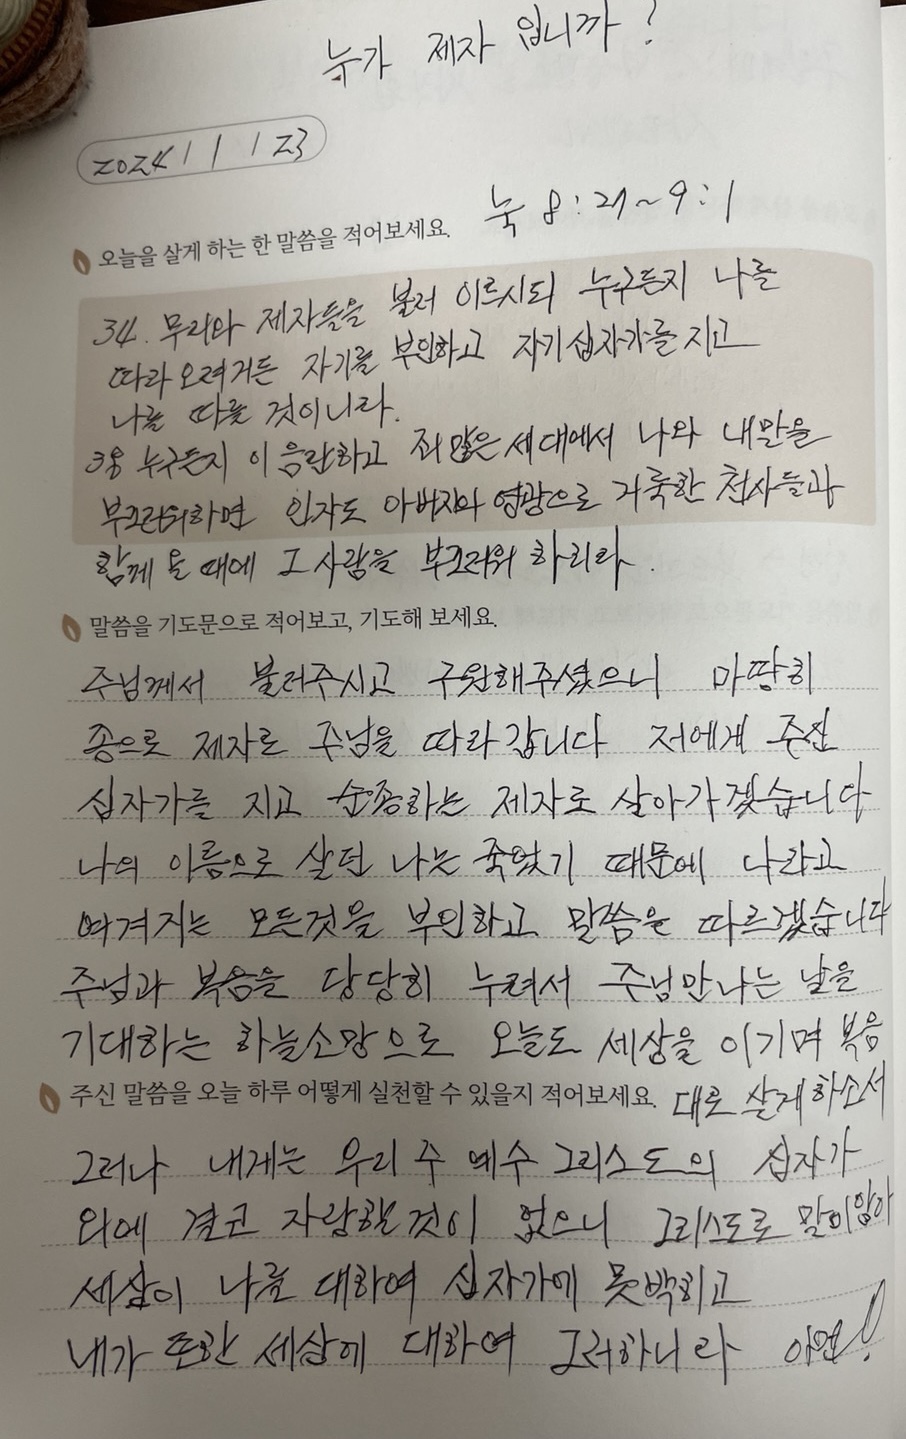 누가 제자 입니까?
2024 / 1 / 23
눅 8:27~9:1
오늘을 살게 하는 한 말씀을 적어보세요.
34. 무리와 제자들을 불러 이르시되 누구든지 나를
따라 오려거든 자기를 부인하고 자기 십자가를 지고
나를 따를 것이니라.
38 누구든지 이 음란하고 죄많은 세대에서 나와 내말을
부끄러워하면 인자도 아버지의 영광으로 거룩한 천사들과
함께 올 때에 그 사람을 부끄러워 하리라.
말씀을 기도문으로 적어보고, 기도해 보세요.
주님께서 불러주시고 구원해주셨으니 마땅히
종으로 제자로 주님을 따라갑니다 저에게 주신
십자가를 지고 순종하는 제자로 살아가겠습니다
나의 이름으로 살던 나는 죽었기 때문에 나라고
여겨지는 모든것을 부인하고 말씀을 따르겠습니다
주님과 복음을 당당히 누려서 주님만나는 날을
기대하는 하늘소망으로 오늘도 세상을 이기며 복음
대로 살게하소서
주신 말씀을 오늘 하루 어떻게 실천할 수 있을지 적어보세요.
그러나 내게는 우리 주 예수 그리스도의 십자가
외에 결코 자랑할것이 없으니 그리스도로 말미암아
세상이 나를 대하여 십자가에 못박히고
내가 또한 세상에 대하여 그러하니라 아멘!